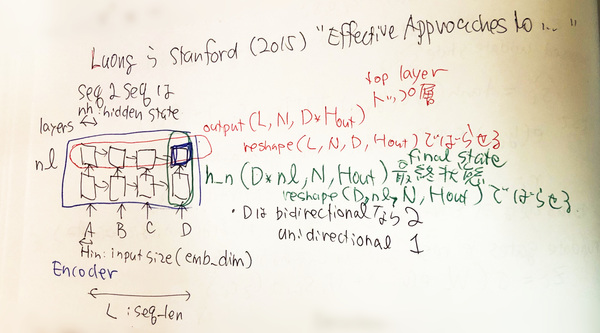 Luong ら Stanford (2015) "Effective Approaches to ... "
seq 2 seq は
nh: hidden state
top layer
トップの層
layers
output (L, N, D*Hout)
reshape (L, N, D, Hout) でばらせる
nl
final state
h_n (D*nl, N, Hout) 最終状態
reshape (D, nl, N, Hout) でばらせる
・Dは bidirectional なら 2
unidirectional 1
A B C D
Hin: input size (emb_dim)
Encoder
L : seq_len